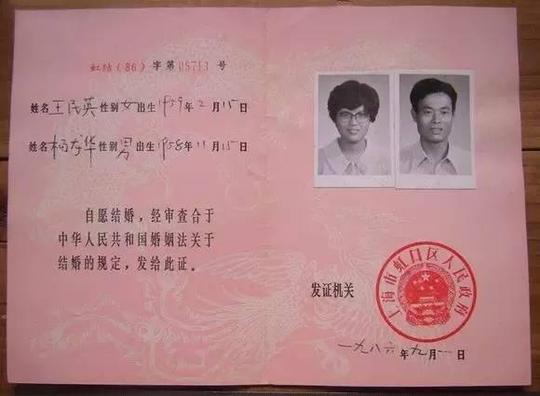 虹结（86）字第05713号
姓名王民英性别女出生1959年2月15日
姓名杨 华性别男出生1958年11月15日
自愿结婚，经审查合于
中华人民共和国婚姻法关于
结婚的规定，发给此证。
上海市虹口区人民政府
发证机关
一九八六年九月一日